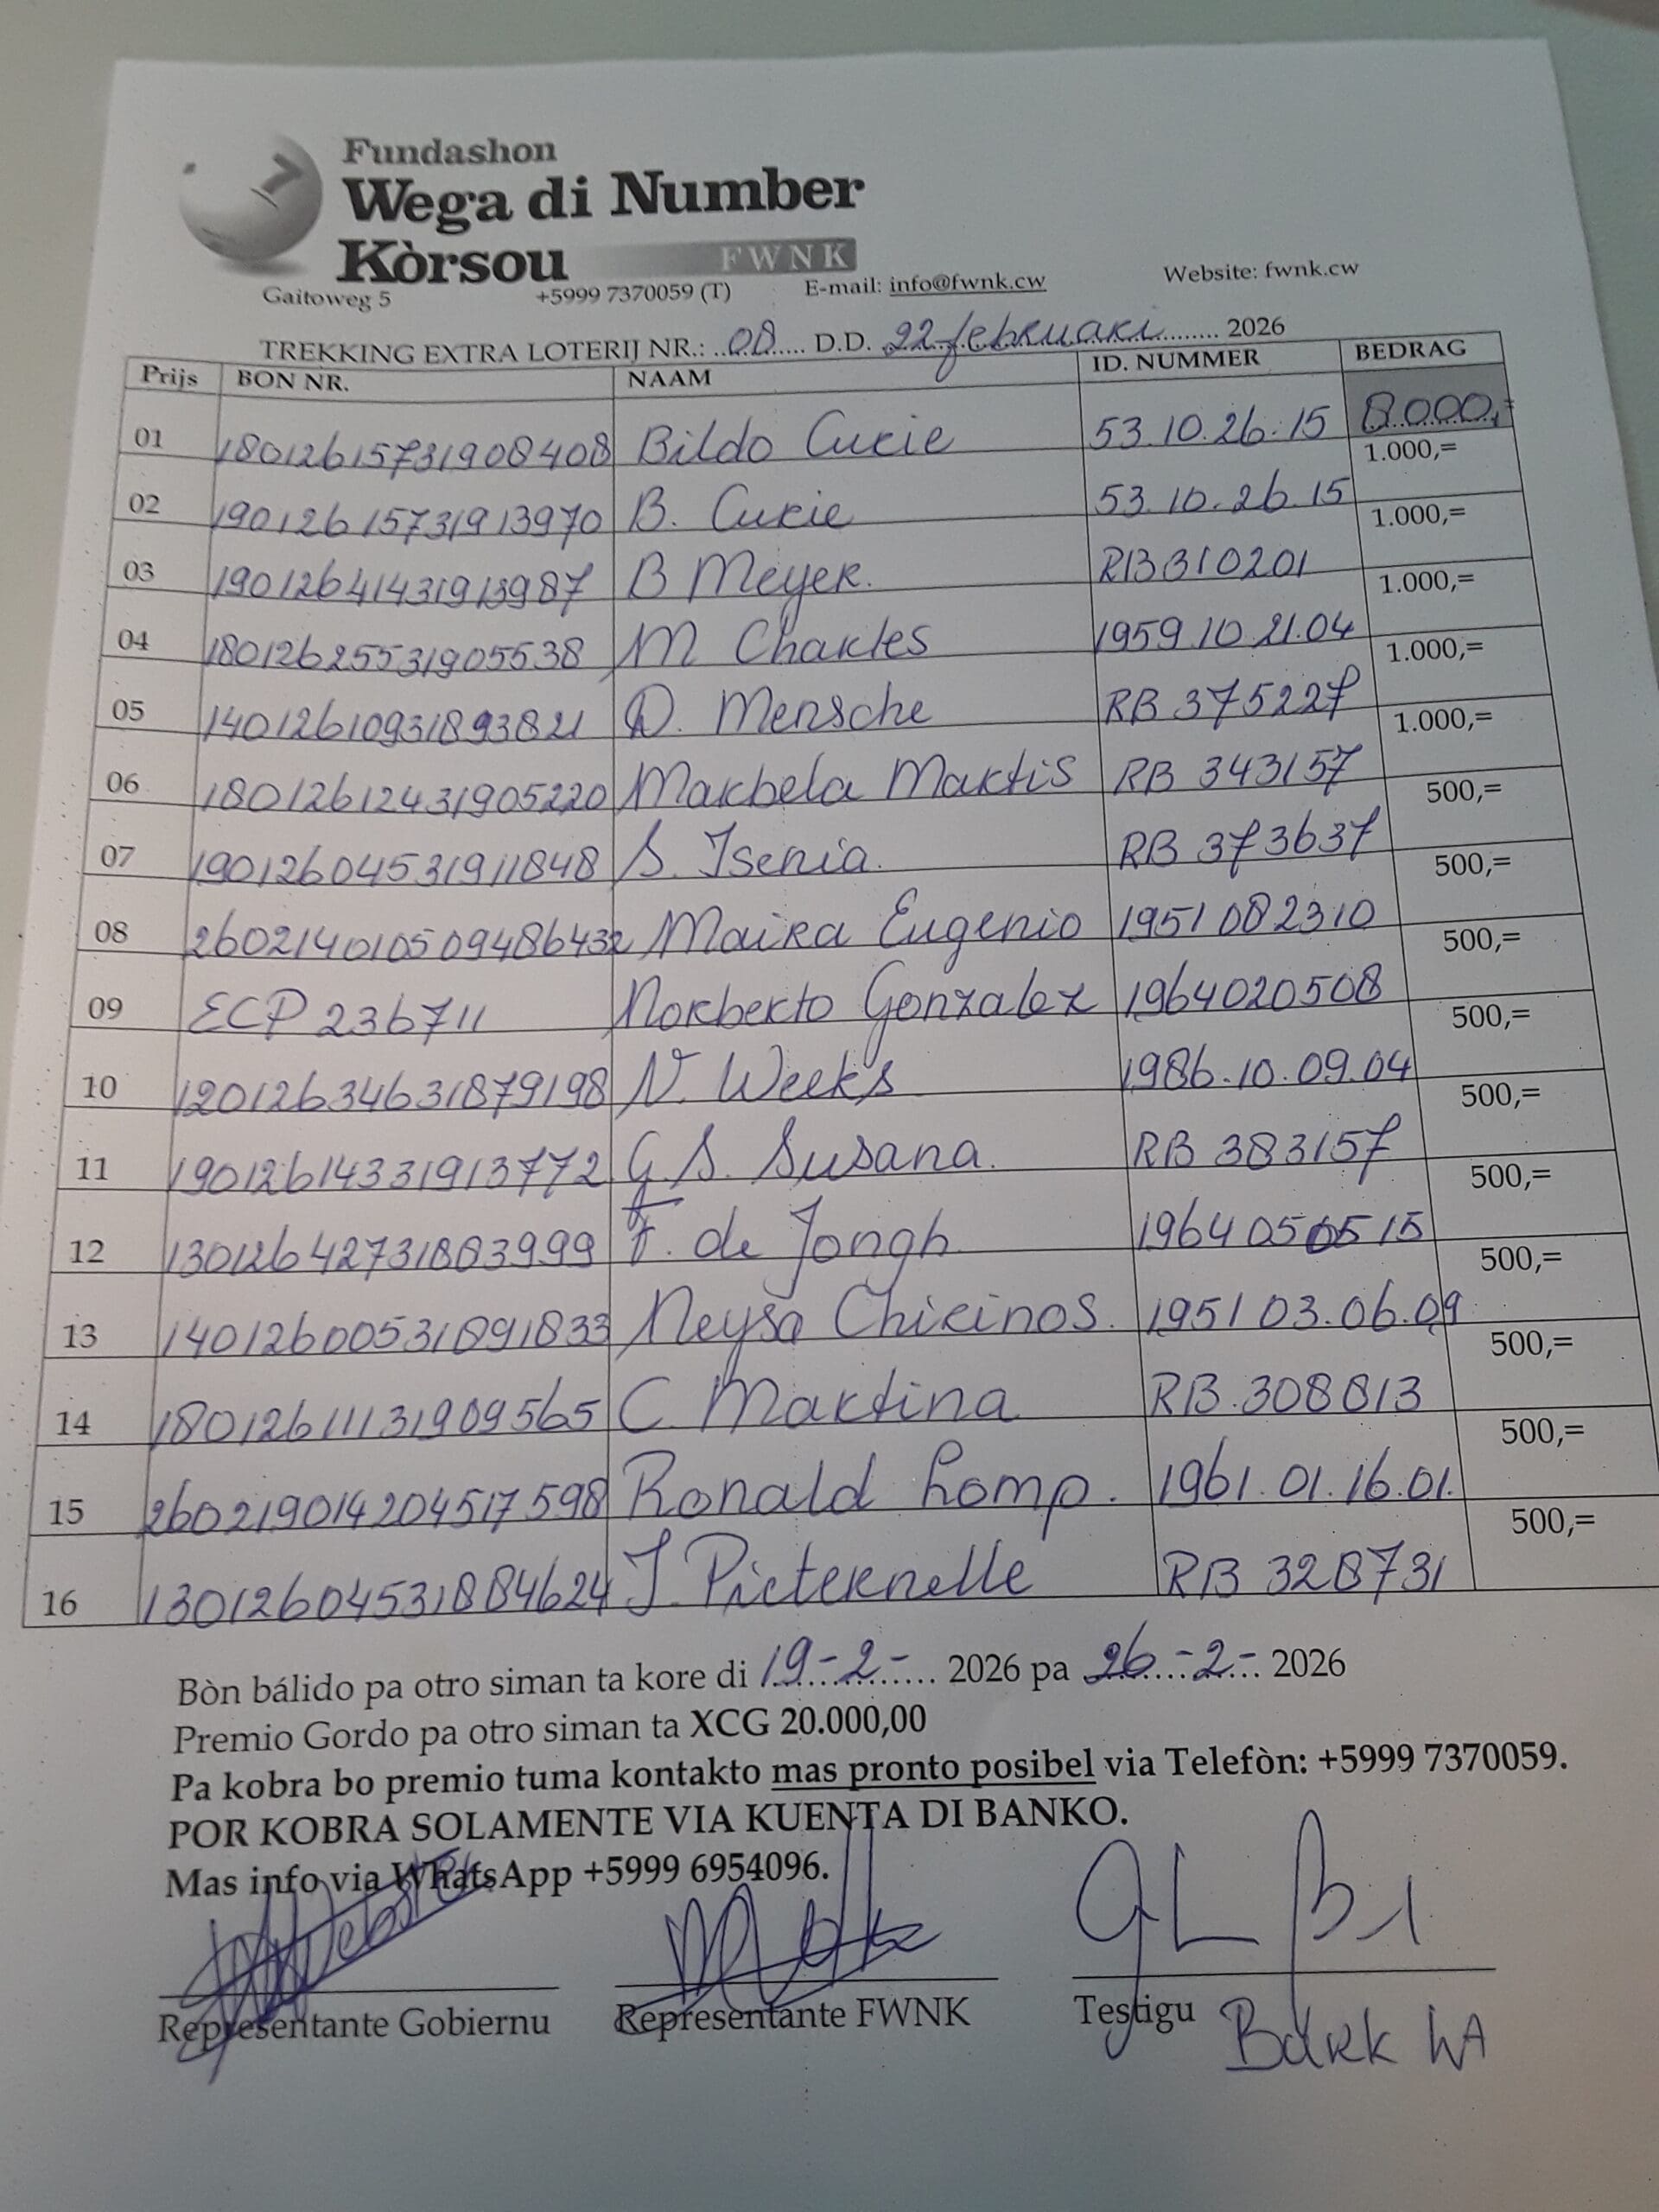 Fundashon
Wega di Number
Kòrsou FWNK
Gaitoweg 5 +5999 7370059 (T) E-mail: info@fwnk.cw Website: fwnk.cw
TREKKING EXTRA LOTERIJ NR.: ..08.... D.D. 22 februari........ 2026
Prijs BON NR. NAAM ID. NUMMER BEDRAG
01 1801261573190 8408 Bildo Curie 53.10.26.15 8.000,=
02 19012615731913970 B. Curie 53.10.26.15 1.000,=
03 19012641431913987 B Meyer. RB310201 1.000,=
04 18012625531905538 M Charles 1959.10.21.04 1.000,=
05 14012610931893821 D. Mensche RB 375227 1.000,=
06 18012612431905220 Marbela Martis RB 343157 1.000,=
07 19012604531911848 S. Isenia. RB 373637 500,=
08 26021401050948643​2 Maira Eugenio 1951082310 500,=
09 ECP 236711 Norberto Gonzalez 1964020508 500,=
10 12012634631879198 N. Weeks 1986.10.09.04 500,=
11 19012614331913772 G.S. Susana. RB 383157 500,=
12 13012642731883999 F. de Jongh 1964050515 500,=
13 14012600531891833 Neysa Chirinos. 1951 03.06.09 500,=
14 18012611131909565 C. Martina RB.308813 500,=
15 260219014204517598 Ronald Lomp. 1961.01.16.01. 500,=
16 13012604531884624 J. Pieternelle RB 328731 500,=
Bòn bálido pa otro siman ta kore di 19-2-....... 2026 pa 26.-2-.. 2026
Premio Gordo pa otro siman ta XCG 20.000,00
Pa kobra bo premio tuma kontakto mas pronto posibel via Telefòn: +5999 7370059.
POR KOBRA SOLAMENTE VIA KUENTA DI BANKO.
Mas info via WhatsApp +5999 6954096.
Representante Gobiernu Representante FWNK Testigu